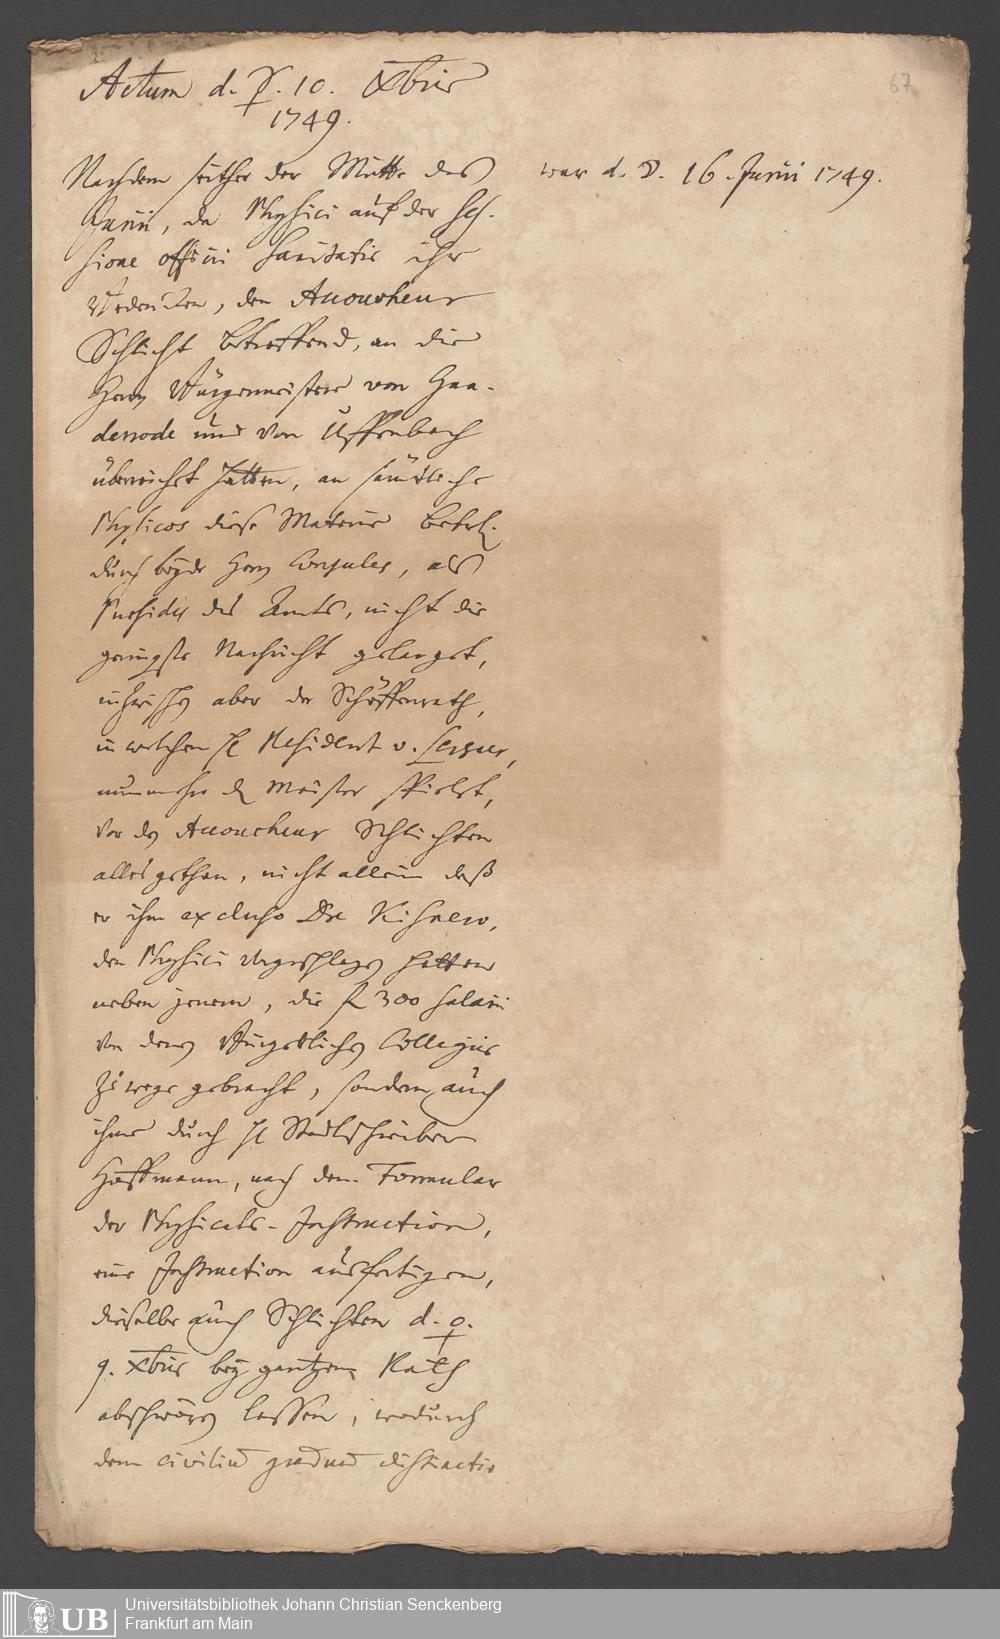 Actum d. ☿. 10. Xbris
1749.
67
Nachdem seither der Mitte des
war d. 16. Junii 1749.
Junii, da Physici auf der Ses-
sione officii Sanitatis ihr
Bedencken, den Accoucheur
Schlicht betreffend, an die
Herrn Bürgermeistere von Gün-
derrode und von Uffenbach
überreichet hatten, an sämtliche
Physicos diese Materie betrl.
durch beyde Herrn Consules, als
Praesides des Amts, nicht die
geringste Nachricht gelanget,
inzwischen aber der Schöffenrath,
in welchem H. Resident v. Lersner,
nunmehr den Meister spielet,
vor den Accoucheur Schlichten
alles gethan, nicht allein daß
er ihm excluso Dre Kisnero,
den Physici vorgeschlagen hatten
neben jenem, die f 300 Salarii
von denen Bürgerlichen Collegiis
zuwege gebracht, sondern auch
ihme durch H. Stadtschreiber
Hoffmann, nach dem Formular
der Physicats-Instruction,
eine Instruction ausfertigen,
dieselbe auch Schlichten d.
9. Xbris bey gantzem Rath
abschwören lassen, wodurch
dem civilium graduum distinctio
Universitätsbibliothek Johann Christian Senckenberg
UB Frankfurt am Main